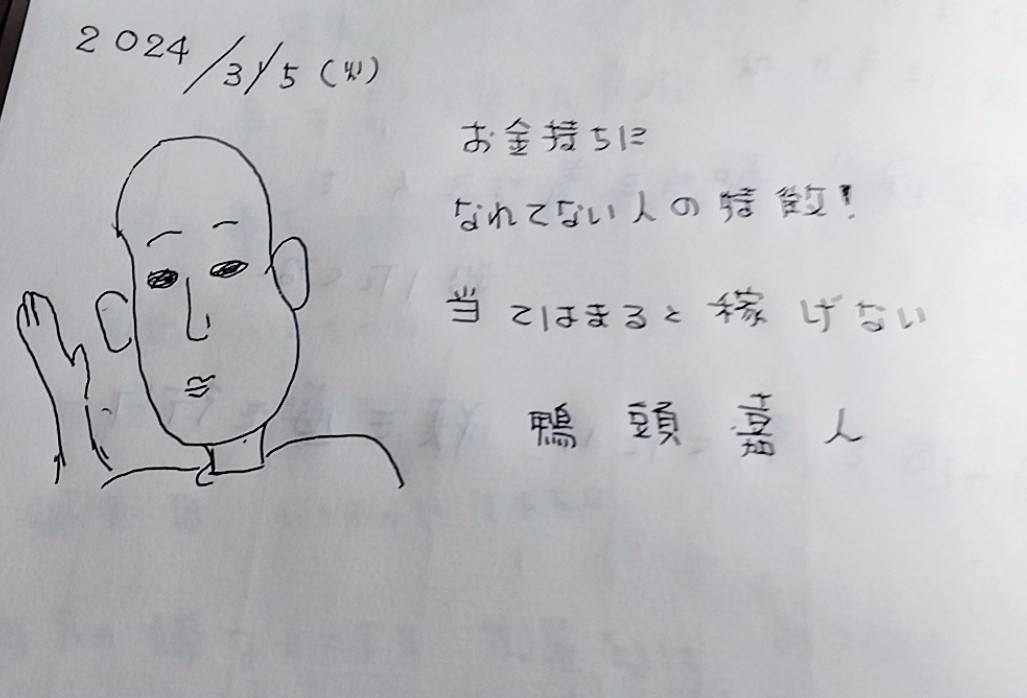 2024/3/5(火)
お金持ちに
なれてない人の特徴!
当てはまると稼げない
鴨頭嘉人